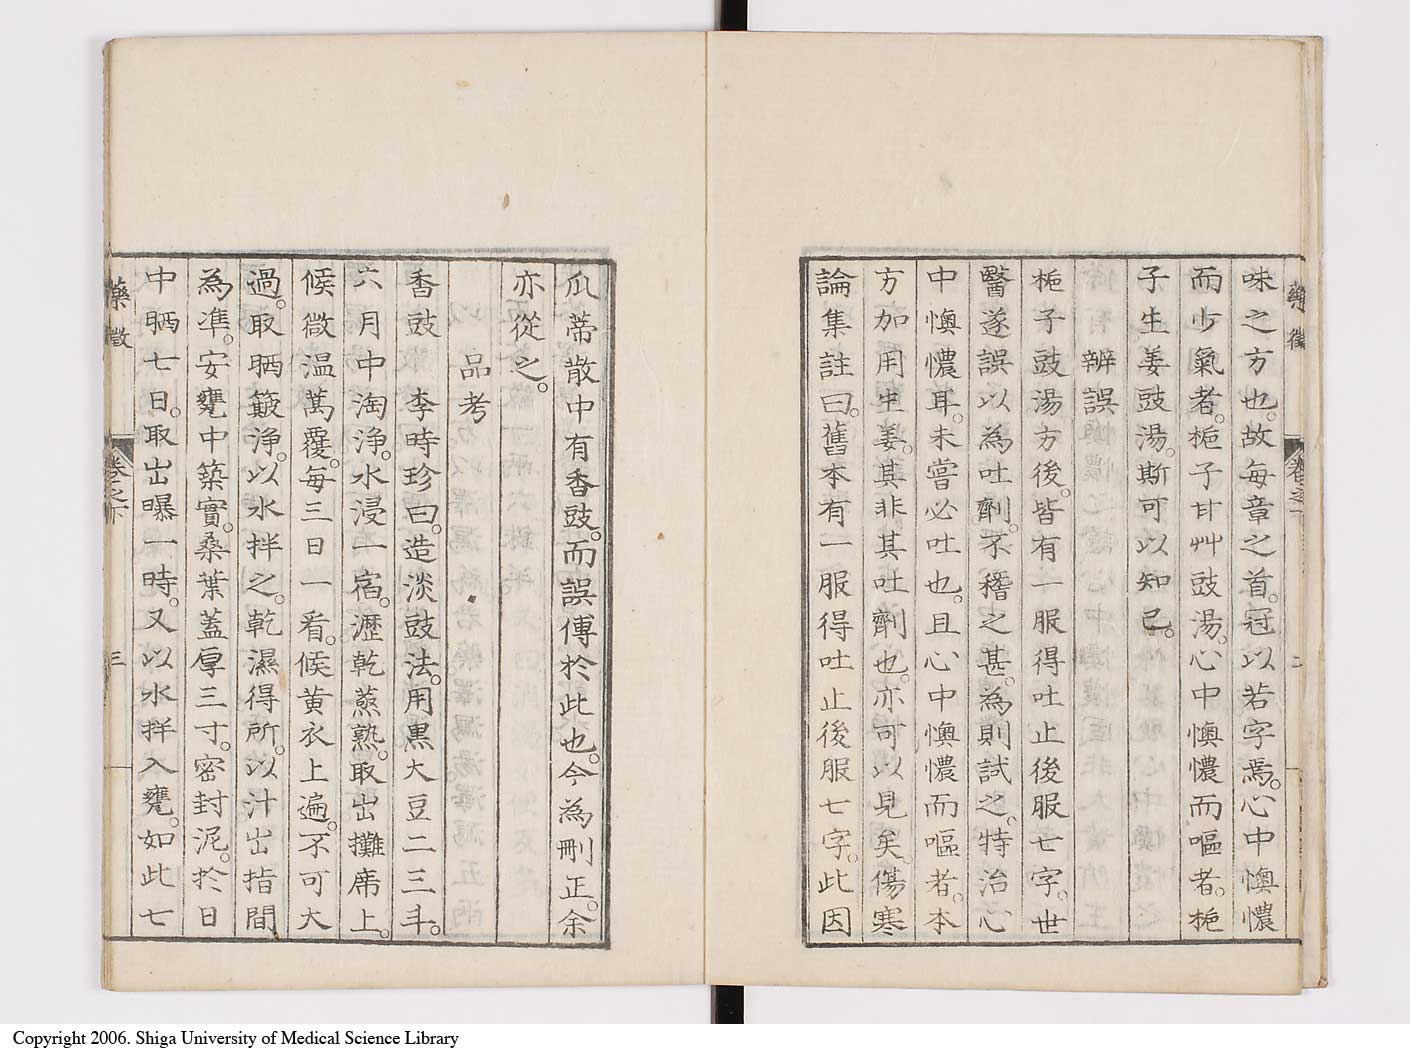 味之方也。故每章之首。冠以若字焉。心中懊憹
而少氣者。梔子甘艸豉湯。心中懊憹而嘔者。梔
子生姜豉湯。斯可以知已。
辨誤
梔子豉湯方後。皆有一服得吐止後服七字。世
醫遂誤以為吐劑。不稽之甚。為則試之。特治心
中懊憹耳。未嘗必吐也。且心中懊憹而嘔者。本
方加用生姜。其非其吐劑也。亦可以見矣。傷寒
論集註曰。舊本有一服得吐止後服七字。此因
瓜蒂散中有香豉。而誤傅於此也。今為刪正。余
亦從之。
品考
香豉 李時珍曰。造淡豉法。用黒大豆二三斗。
六月中淘浄。水浸一宿。瀝乾蒸熟。取出攤席上。
候微温蒿覆。每三日一看。候黄衣上遍。不可大
過。取晒簸浄。以水拌之。乾濕得所。以汁出指間
為準。安甕中築實。桑葉蓋厚三寸。密封泥。於日
中晒七日。取出曝一時。又以水拌入甕。如此七
藥徴
卷之下
三